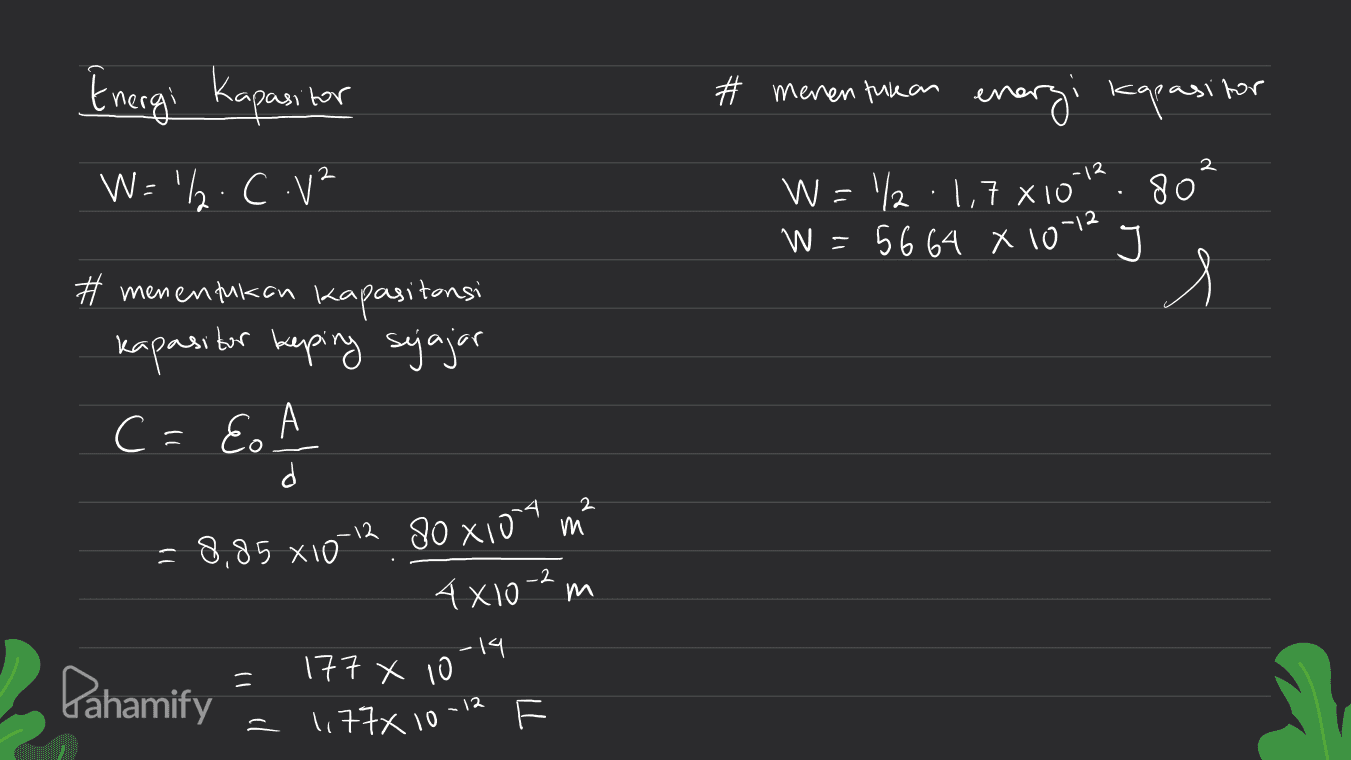 Energi Kapasitor
W = 1/2 . C . V²
# menentukan kapasitansi
kapasitor keping sejajar
C = ε₀ A/d
= 8,85 x10⁻¹² . 80 x10⁻⁴ m² / 4 x10⁻² m
= 177 x 10⁻¹⁴
= 1,77 x 10⁻¹² F
# menentukan energi kapasitor
W = 1/2 . 1,7 x10⁻¹² . 80²
W = 5664 x 10⁻¹² J
Pahamify